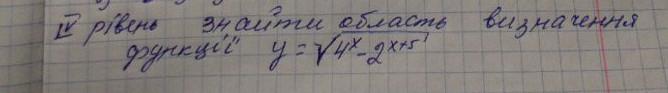 IV рівень знайти область визначення
функції y = √(4^x - 2^(x+5))